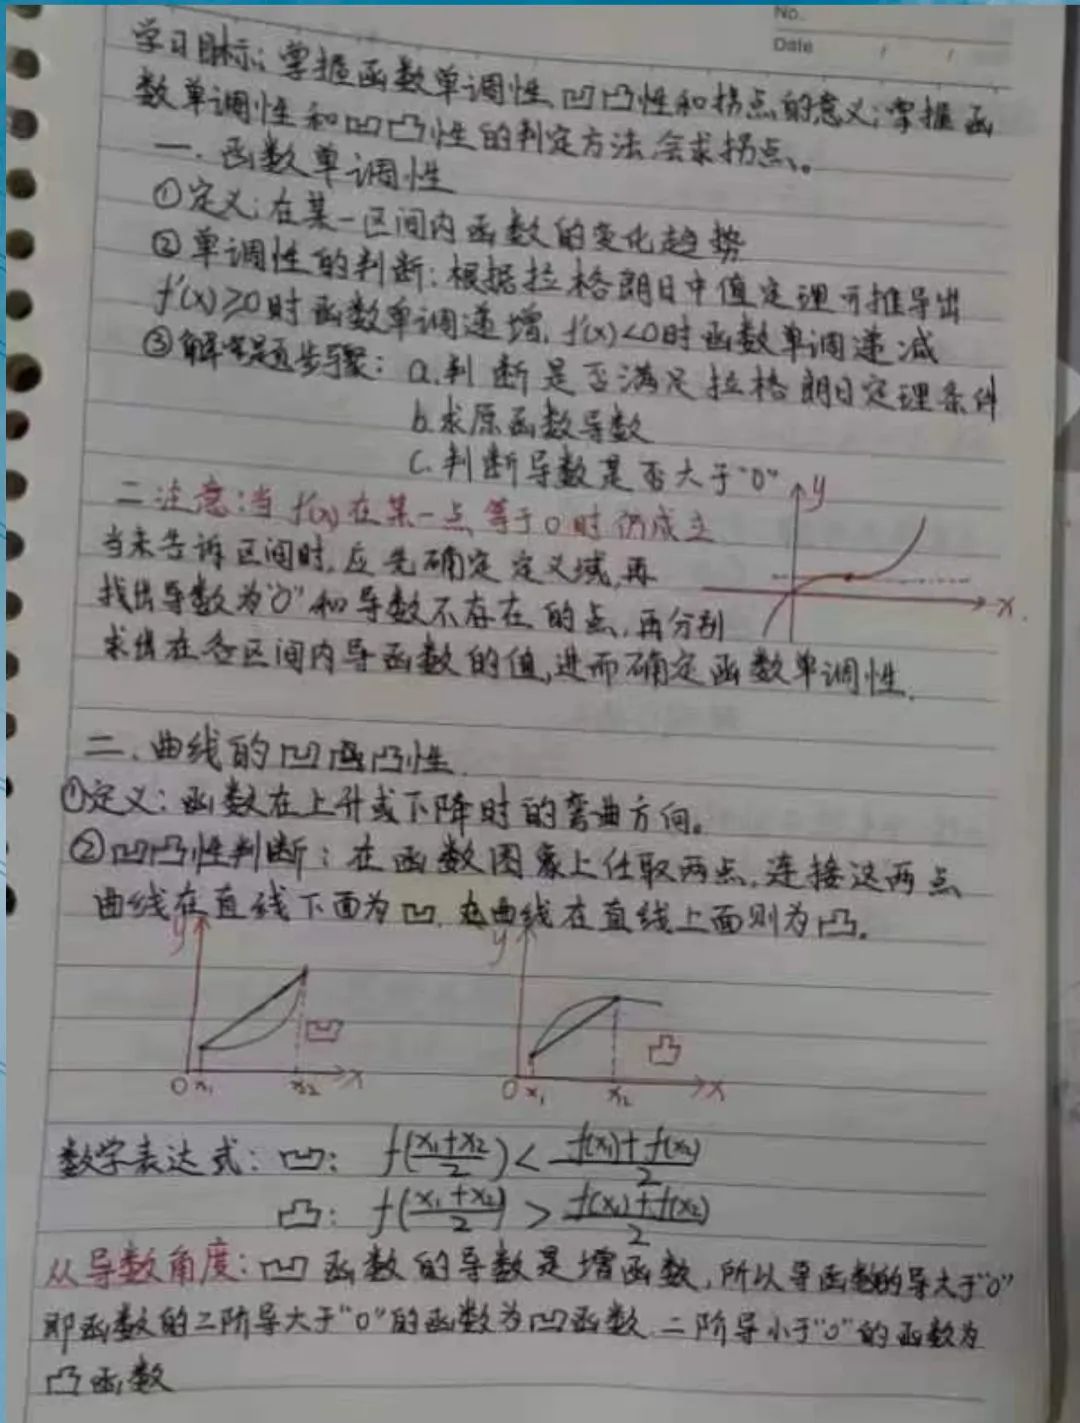 No.
Date
学习目标：掌握函数单调性、凹凸性和拐点的意义；掌握函
数单调性和凹凸性的判定方法会求拐点。
一．函数单调性
①定义：在某一区间内函数的变化趋势
②单调性的判断：根据拉格朗日中值定理可推导出
f'(x)≥0时函数单调递增，f'(x)<0时函数单调递减
③解答题步骤：a.判断是否满足拉格朗日定理条件
b.求原函数导数
c.判断导数是否大于"0"
二注意：当f'(x)在某一点等于0时仍成立
y
当未告诉区间时，应先确定定义域，再
找出导数为"0"和导数不存在的点，再分别
x
求出在各区间内导函数的值，进而确定函数单调性．
二．曲线的凹凸性
①定义：函数在上升或下降时的弯曲方向。
②凹凸性判断：在函数图象上任取两点，连接这两点
曲线在直线下面为凹．曲线在直线上面则为凸．
y y
凹 凸
0 x₁ x₂ x 0 x₁ x₂ x
数学表达式：凹：f((x₁+x₂)/2)<(f(x₁)+f(x₂))/2
凸：f((x₁+x₂)/2)>(f(x₁)+f(x₂))/2
从导数角度：凹函数的导数是增函数，所以导函数的导大于"0"
即函数的二阶导大于"0"的函数为凹函数．二阶导小于"0"的函数为
凸函数